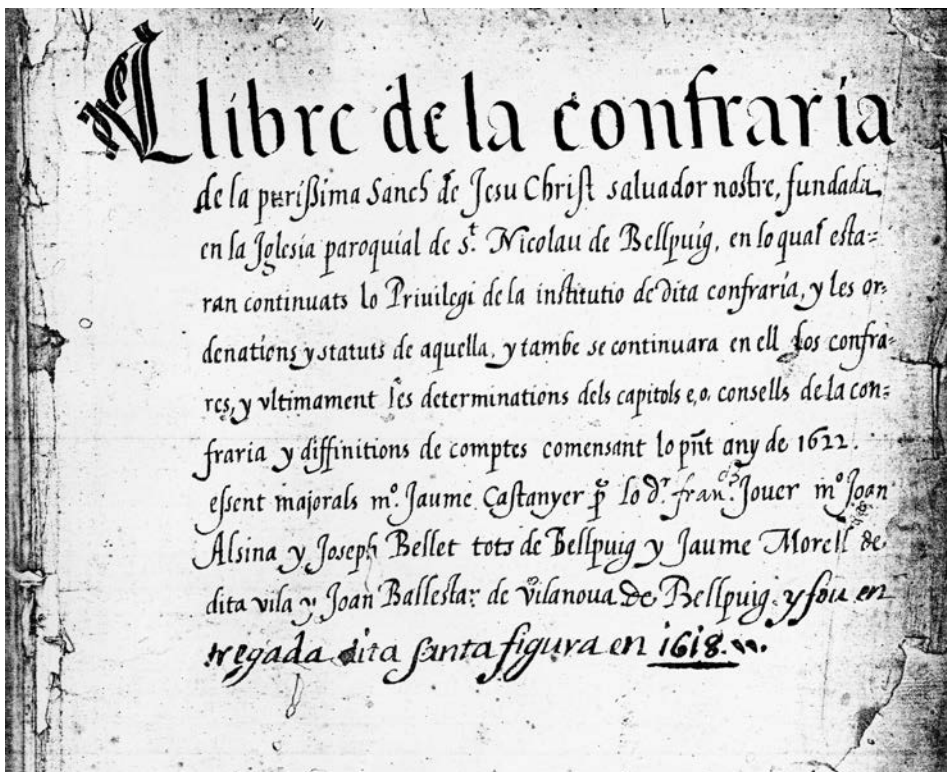 Llibre de la confraria
de la puríssima Sanch de Jesu Christ saluador nostre, fundada
en la Jglesia paroquial de s.t Nicolau de Bellpuig, en lo qual esta=
ran continuats lo Priuilegi de la institutio de dita confraria, y les or=
denations y statuts de aquella, y tambe se continuara en ell los confra=
res, y vltimament les determinations dels capitols e, o. consells de la con=
fraria y diffinitions de comptes comensant lo pñt any de 1622.
essent majorals m.o Jaume Castanyer lo d.r fran.co Jouer m.o Joan
Alsina y Joseph Bellet tots de Bellpuig y Jaume Morell de
dita vila y Joan Ballestar de Vilanoua de Bellpuig. y fou en
tregada dita santa figura en 1618.